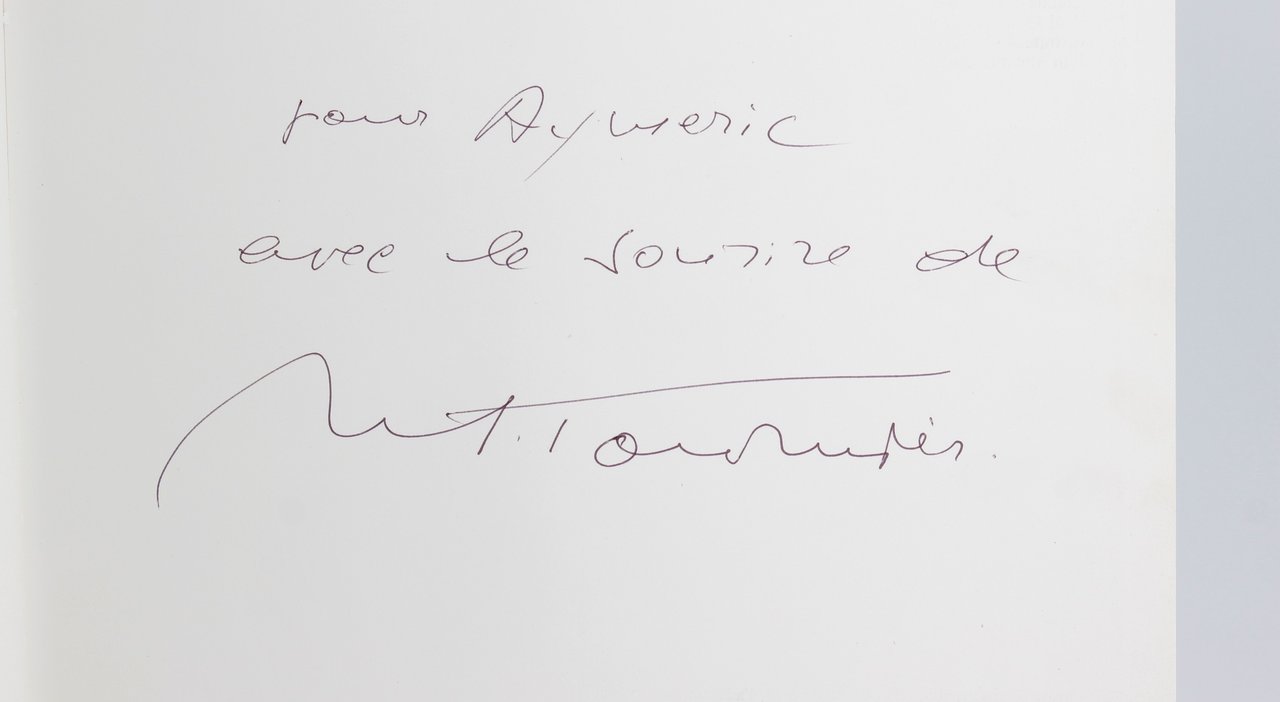 pour Aymeric
avec le sourire de
M. Tournier.